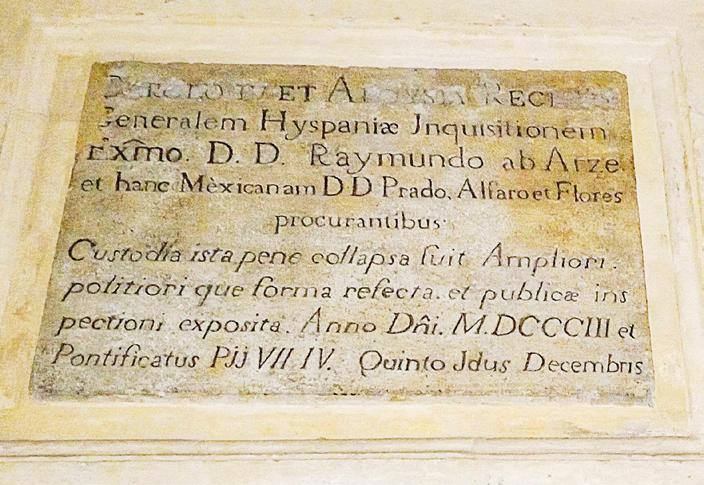 ET ALOYSIA
Generalem Hyspaniæ Jnquisitionem
Exm̃o. D. D. Raymundo ab Arze.
et hanc Mèxicanam D D Prado, Alfaro et Flores
procurantibus.
Custodia ista pene collapsa fuit Ampliori.
politiori que forma refecta. et publicæ ins
pectioni exposita. Anno Dñi. M.DCCCIII et
Pontificatus Pjj VII IV. Quinto Jdus Decembris